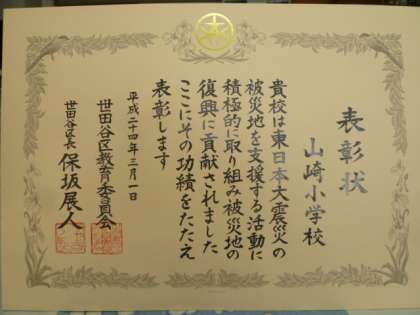 表彰状
山崎小学校
貴校は東日本大震災の
被災地を支援する活動に
積極的に取り組み被災地の
復興に貢献されました
ここにその功績をたたえ
表彰します
平成二十四年三月一日
世田谷区教育委員会
世田谷区長 保坂展人